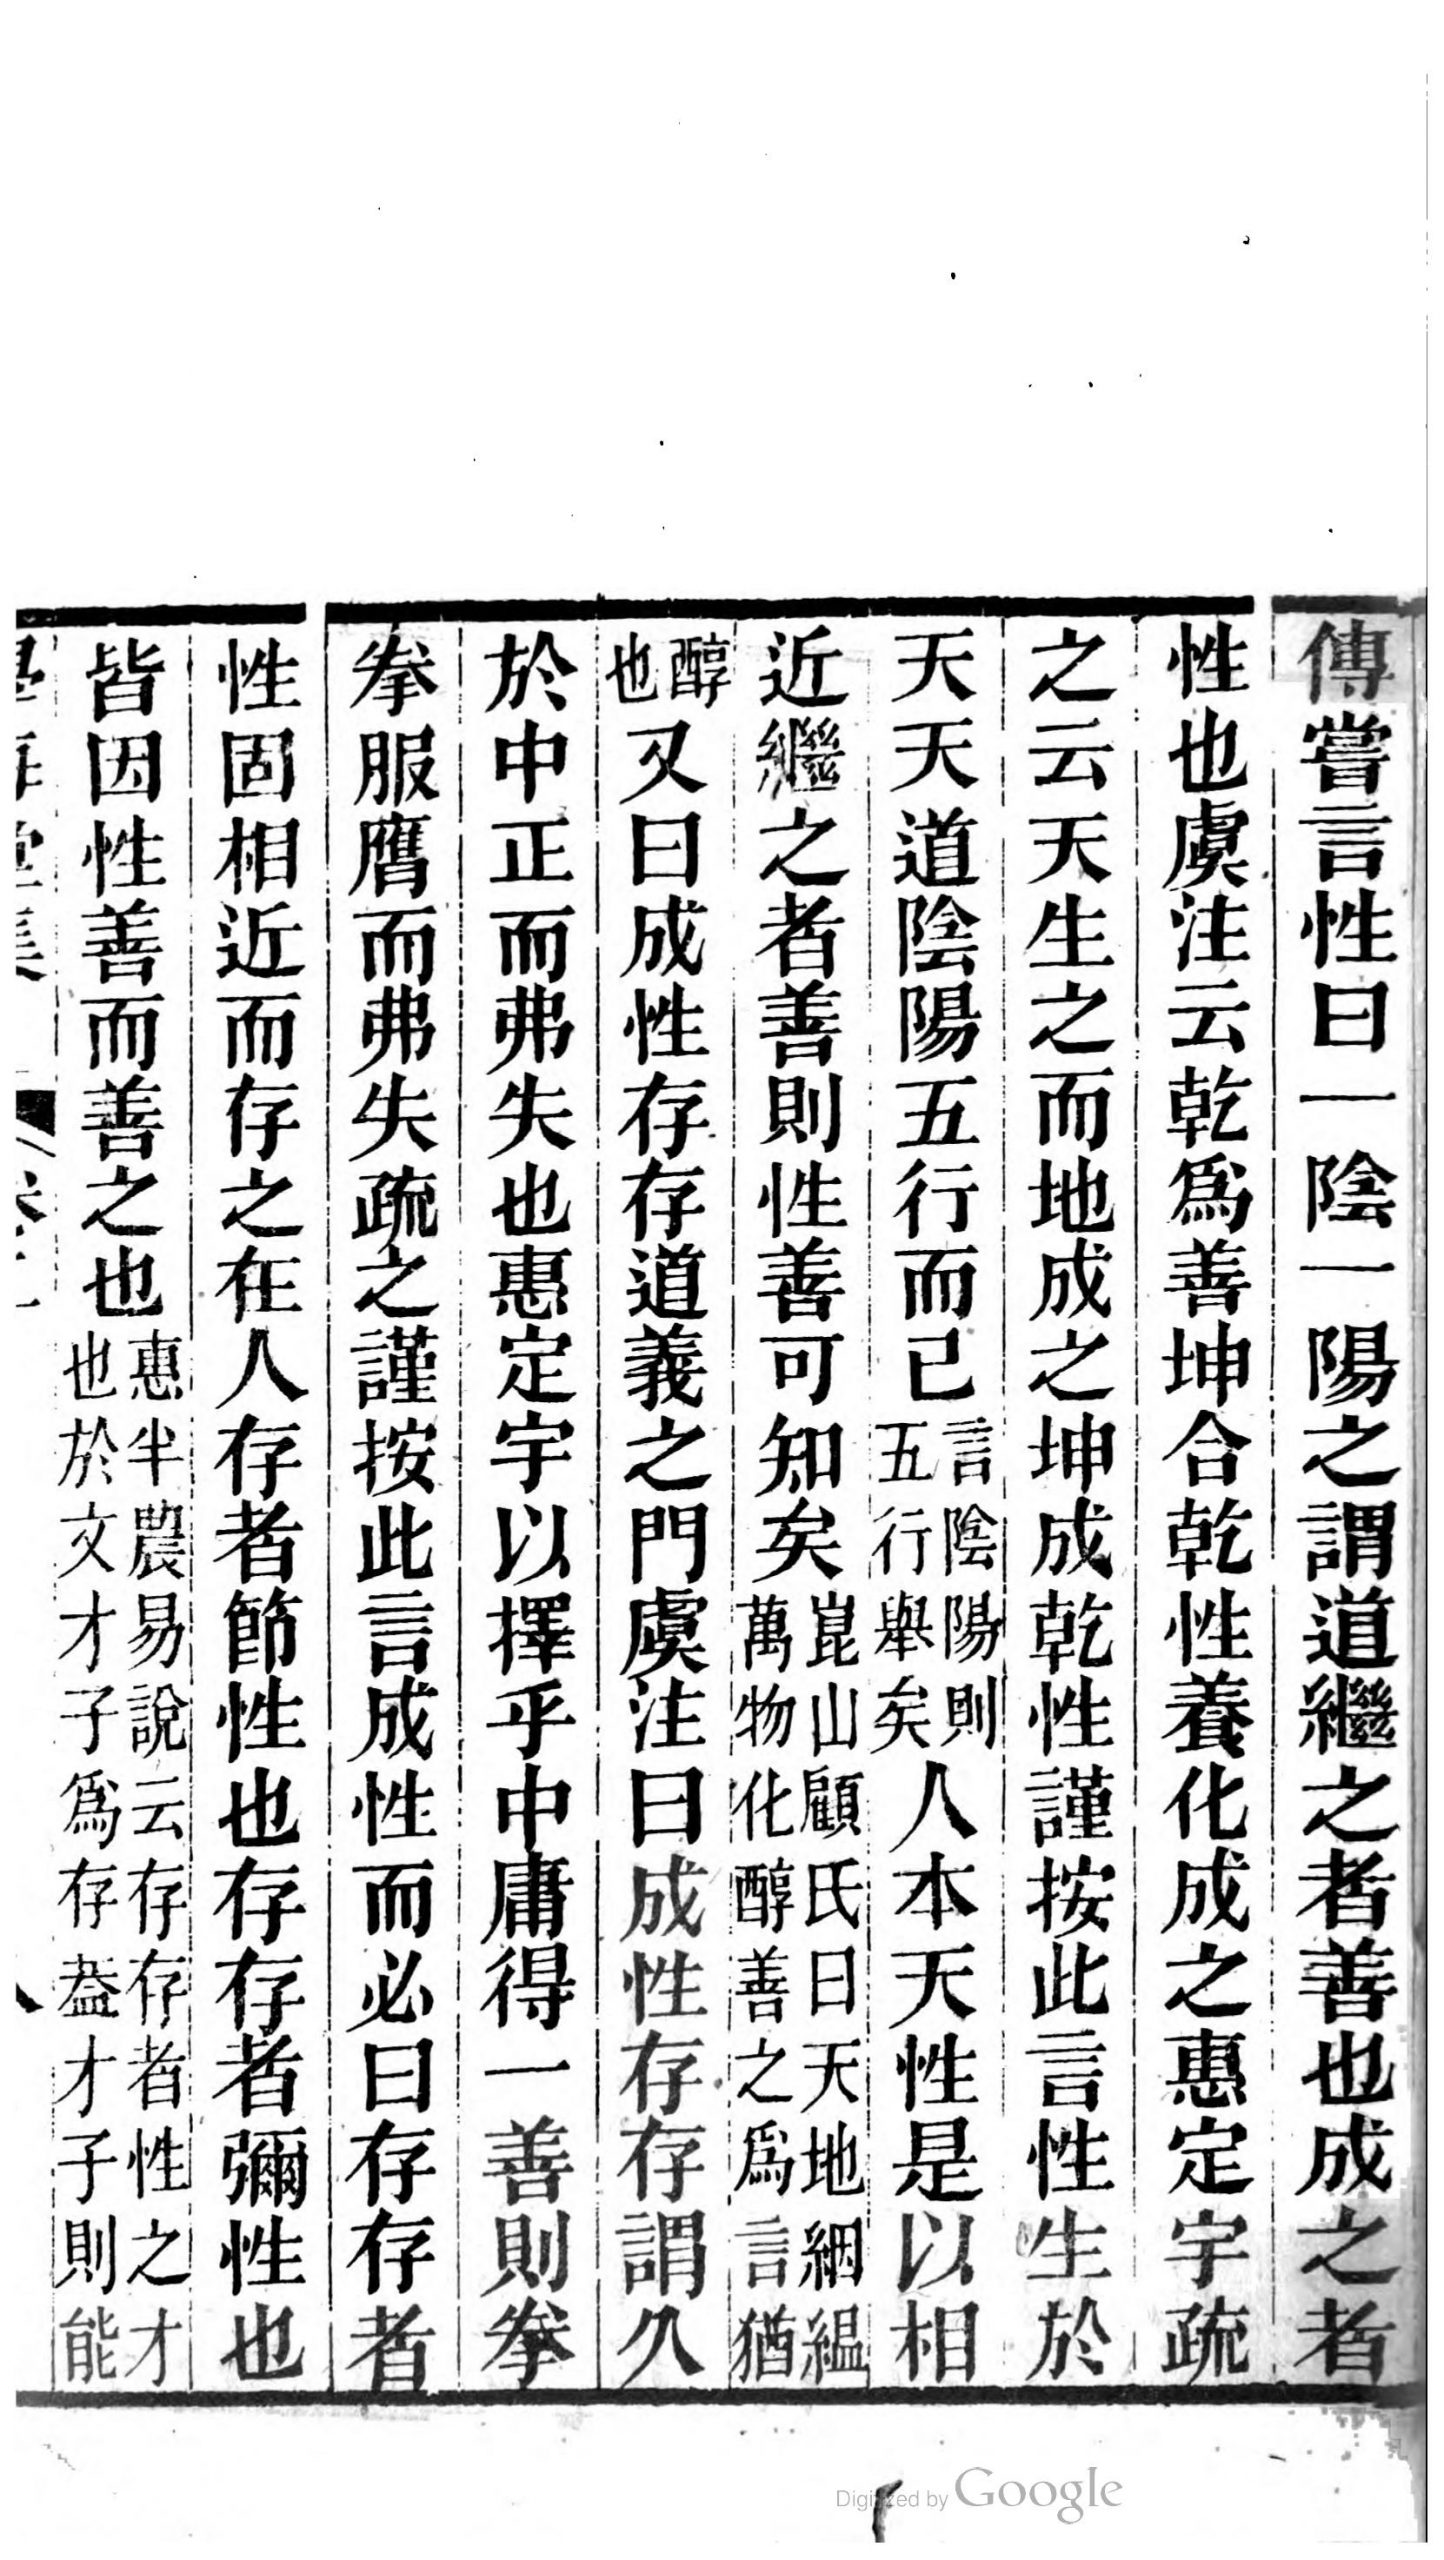 傳嘗言性曰一陰一陽之謂道繼之者善也成之者
性也虞注云乾爲善坤合乾性養化成之惠定宇疏
之云天生之而地成之坤成乾性謹按此言性生於
天天道陰陽五行而已言陰陽則五行舉矣人本天性是以相
近繼之者善則性善可知矣崑山顧氏曰天地絪縕萬物化醇善之爲言猶
醇也又曰成性存存道義之門虞注曰成性存存謂久
於中正而弗失也惠定宇以擇乎中庸得一善則拳
拳服膺而弗失疏之謹按此言成性而必曰存存者
性固相近而存之在人存者節性也存存者彌性也
皆因性善而善之也惠半農易說云存存者性之才也於文才子爲存葢才子則能
Digitized by Google